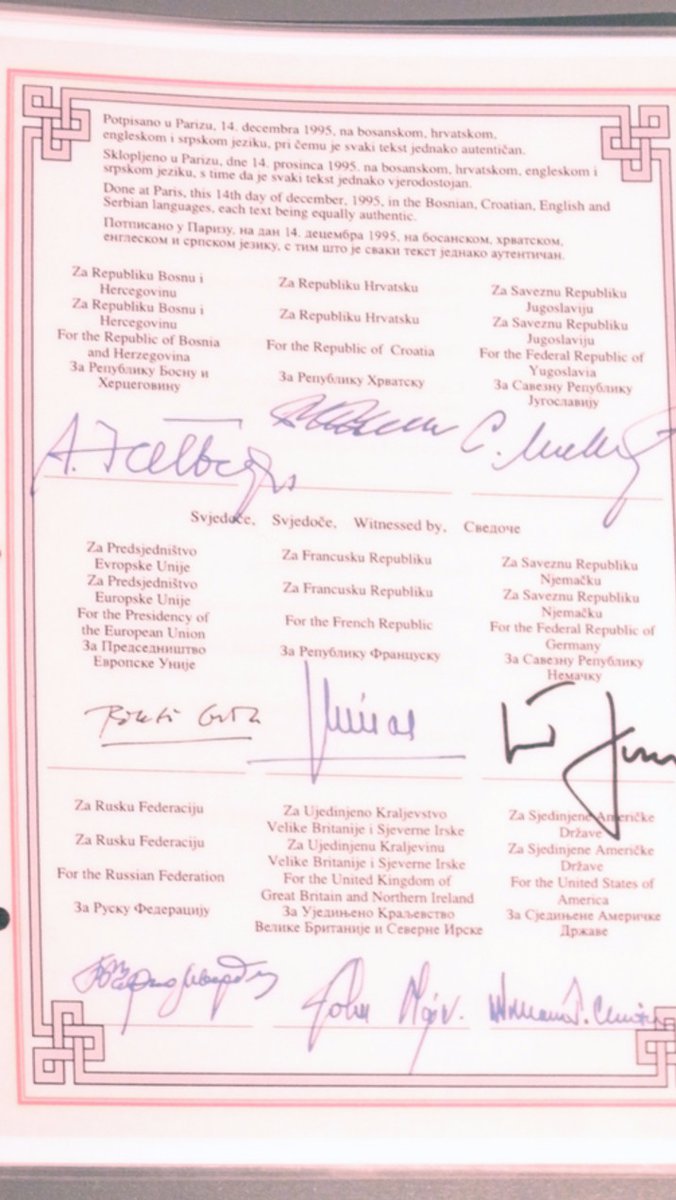 Potpisano u Parizu, 14. decembra 1995, na bosanskom, hrvatskom,
engleskom i srpskom jeziku, pri čemu je svaki tekst jednako autentičan.
Sklopljeno u Parizu, dne 14. prosinca 1995. na bosanskom, hrvatskom, engleskom i
srpskom jeziku, s time da je svaki tekst jednako vjerodostojan.
Done at Paris, this 14th day of december, 1995, in the Bosnian, Croatian, English and
Serbian languages, each text being equally authentic.
Потписано у Паризу, на дан 14. децембра 1995, на босанском, хрватском,
енглеском и српском језику, с тим што је сваки текст једнако аутентичан.
Za Republiku Bosnu i
Hercegovinu
Za Republiku Bosnu i
Hercegovinu
For the Republic of Bosnia
and Herzegovina
За Републику Босну и
Херцеговину
Za Republiku Hrvatsku
Za Republiku Hrvatsku
For the Republic of Croatia
За Републику Хрватску
Za Saveznu Republiku
Jugoslaviju
Za Saveznu Republiku
Jugoslaviju
For the Federal Republic of
Yugoslavia
За Савезну Републику
Југославију
Svjedoče, Svjedoče, Witnessed by, Сведоче
Za Predsjedništvo
Evropske Unije
Za Predsjedništvo
Europske Unije
For the Presidency of
the European Union
За Председништво
Европске Уније
Za Francusku Republiku
Za Francusku Republiku
For the French Republic
За Републику Француску
Za Saveznu Republiku
Njemačku
Za Saveznu Republiku
Njemačku
For the Federal Republic of
Germany
За Савезну Републику
Немачку
Za Rusku Federaciju
Za Rusku Federaciju
For the Russian Federation
За Руску Федерацију
Za Ujedinjeno Kraljevstvo
Velike Britanije i Sjeverne Irske
Za Ujedinjenu Kraljevinu
Velike Britanije i Sjeverne Irske
For the United Kingdom of
Great Britain and Northern Ireland
За Уједињено Краљевство
Велике Британије и Северне Ирске
John Major
Za Sjedinjene Američke
Države
Za Sjedinjene Američke
Države
For the United States of
America
За Сједињене Америчке
Државе